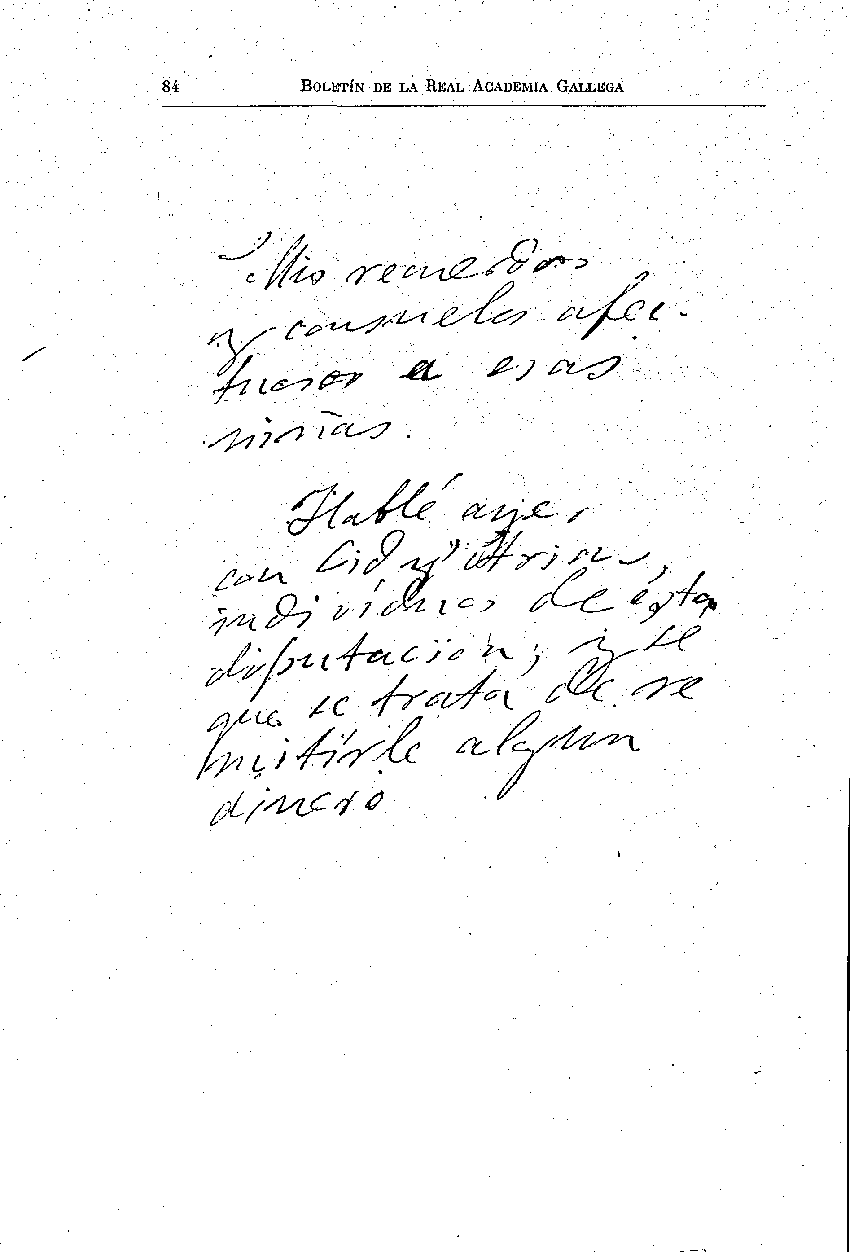 84 BOLETÍN DE LA REAL ACADEMIA GALLEGA
Mis recuerdos
y consuelos afec-
tuosos a esas
niñas.
Hablé ayer
con Cid y
individuos de ésta
diputación; y se
que se trata de re
mitirle algun
dinero